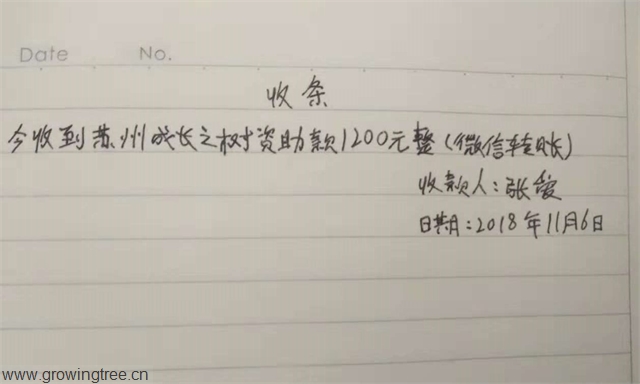 Date No.
收条
今收到苏州成长之树资助款1200元整（微信转账）
收款人：张爱
日期：2018年11月6日
www.growingtree.cn